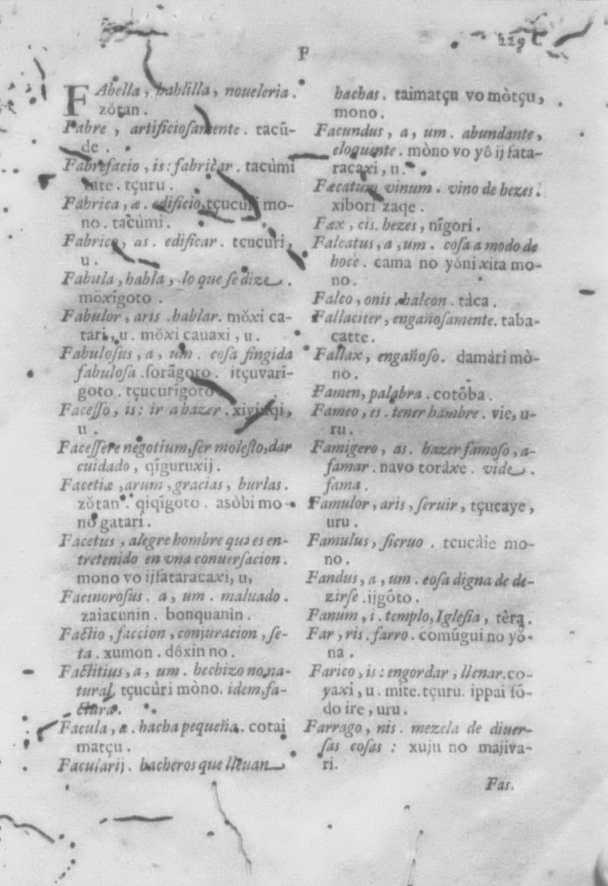 F
229
FAbella, hablilla, noueleria.
zǒtan.
Fabre, artificiosamente. tacŭ-
de.
Fabrefacio, is: fabricar. tacùmi
xite. tçuru.
Fabrica, æ. edificio, tçucuri mo-
no. tacùmi.
Fabrico, as. edificar. tçucuri,
u.
Fabula, habla, lo que se dize.
moxigoto.
Fabulor, aris. hablar. mǒxi ca-
tari, u. mǒxi cauaxi, u.
Fabulosus, a, um. cosa fingida
fabulosa. sorägoto. itçuvari-
goto. tçucurigoto.
Facesso, is: ir a hazer.
u.
Facessere negotium, ser molesto, dar
cuidado, qīguruxij.
Facetiæ, arum, gracias, burlas.
zǒtan. qiqīgoto. asòbi mo-
no gatari.
Facetus, alegre hombre que es en-
tretenido en vna conuersacion.
mono vo ijfataracaxi, u,
Facinorosus. a, um. maluado.
zaiacunin. bonquanin.
Factio, faccion, conjuracion, se-
ta. xumon. dôxin no.
Factitius, a, um. hechizo no na-
tural, tçucùri mòno. idem, fa-
ctura.
Facula, æ. hacha pequeña. cotai
matçu.
Facularij. hacheros que lleuan
hachas. taimatçu vo mòtçu,
mono.
Facundus, a, um. abundante,
eloquente. mòno vo yô ij fata-
racaxi, u.
Fæcatum vinum. vino de hezes.
xibori zaqe.
Fæx, cis. hezes, nīgori.
Falcatus, a, um. cosa a modo de
hoce. cama no yôni xita mo-
no.
Falco, onis. halcon. tàca.
Fallaciter, engañosamente. taba-
catte.
Fallax, engañoso. damàri mò-
no.
Famen, palabra. cotôba.
Fameo, es. tener hambre. vie, u-
ru.
Famigero, as. hazer famoso, a-
famar. navo toràxe. vide.
fama.
Famulor, aris, seruir, tçucaye,
uru.
Famulus, sieruo. tçucàie mo-
no.
Fandus, a, um. cosa digna de de-
zirse. ijgôto.
Fanum, i. templo, Iglesia, tèra.
Far, ris. farro. comúgui no yô-
na.
Farico, is: engordar, llenar. co-
yaxi, u. mite. tçuru. ippai fô-
do ire, uru.
Farrago, nis. mezcla de diuer-
sas cosas: xuju no majiva-
ri.
Fas.